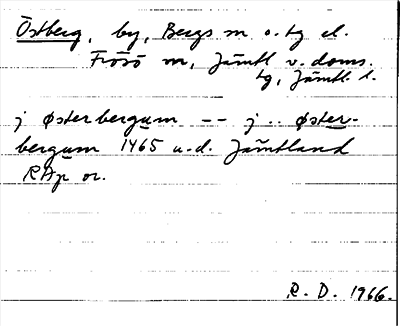 Östberg, by, Bergs sn o. tg el.
Frösö sn, Jämtl v. doms.
tg, Jämtl. l.
j østerbergum -- j .. øster-
bergum 1465 u.d. Jämtland
RAp or.
R. D. 1966.